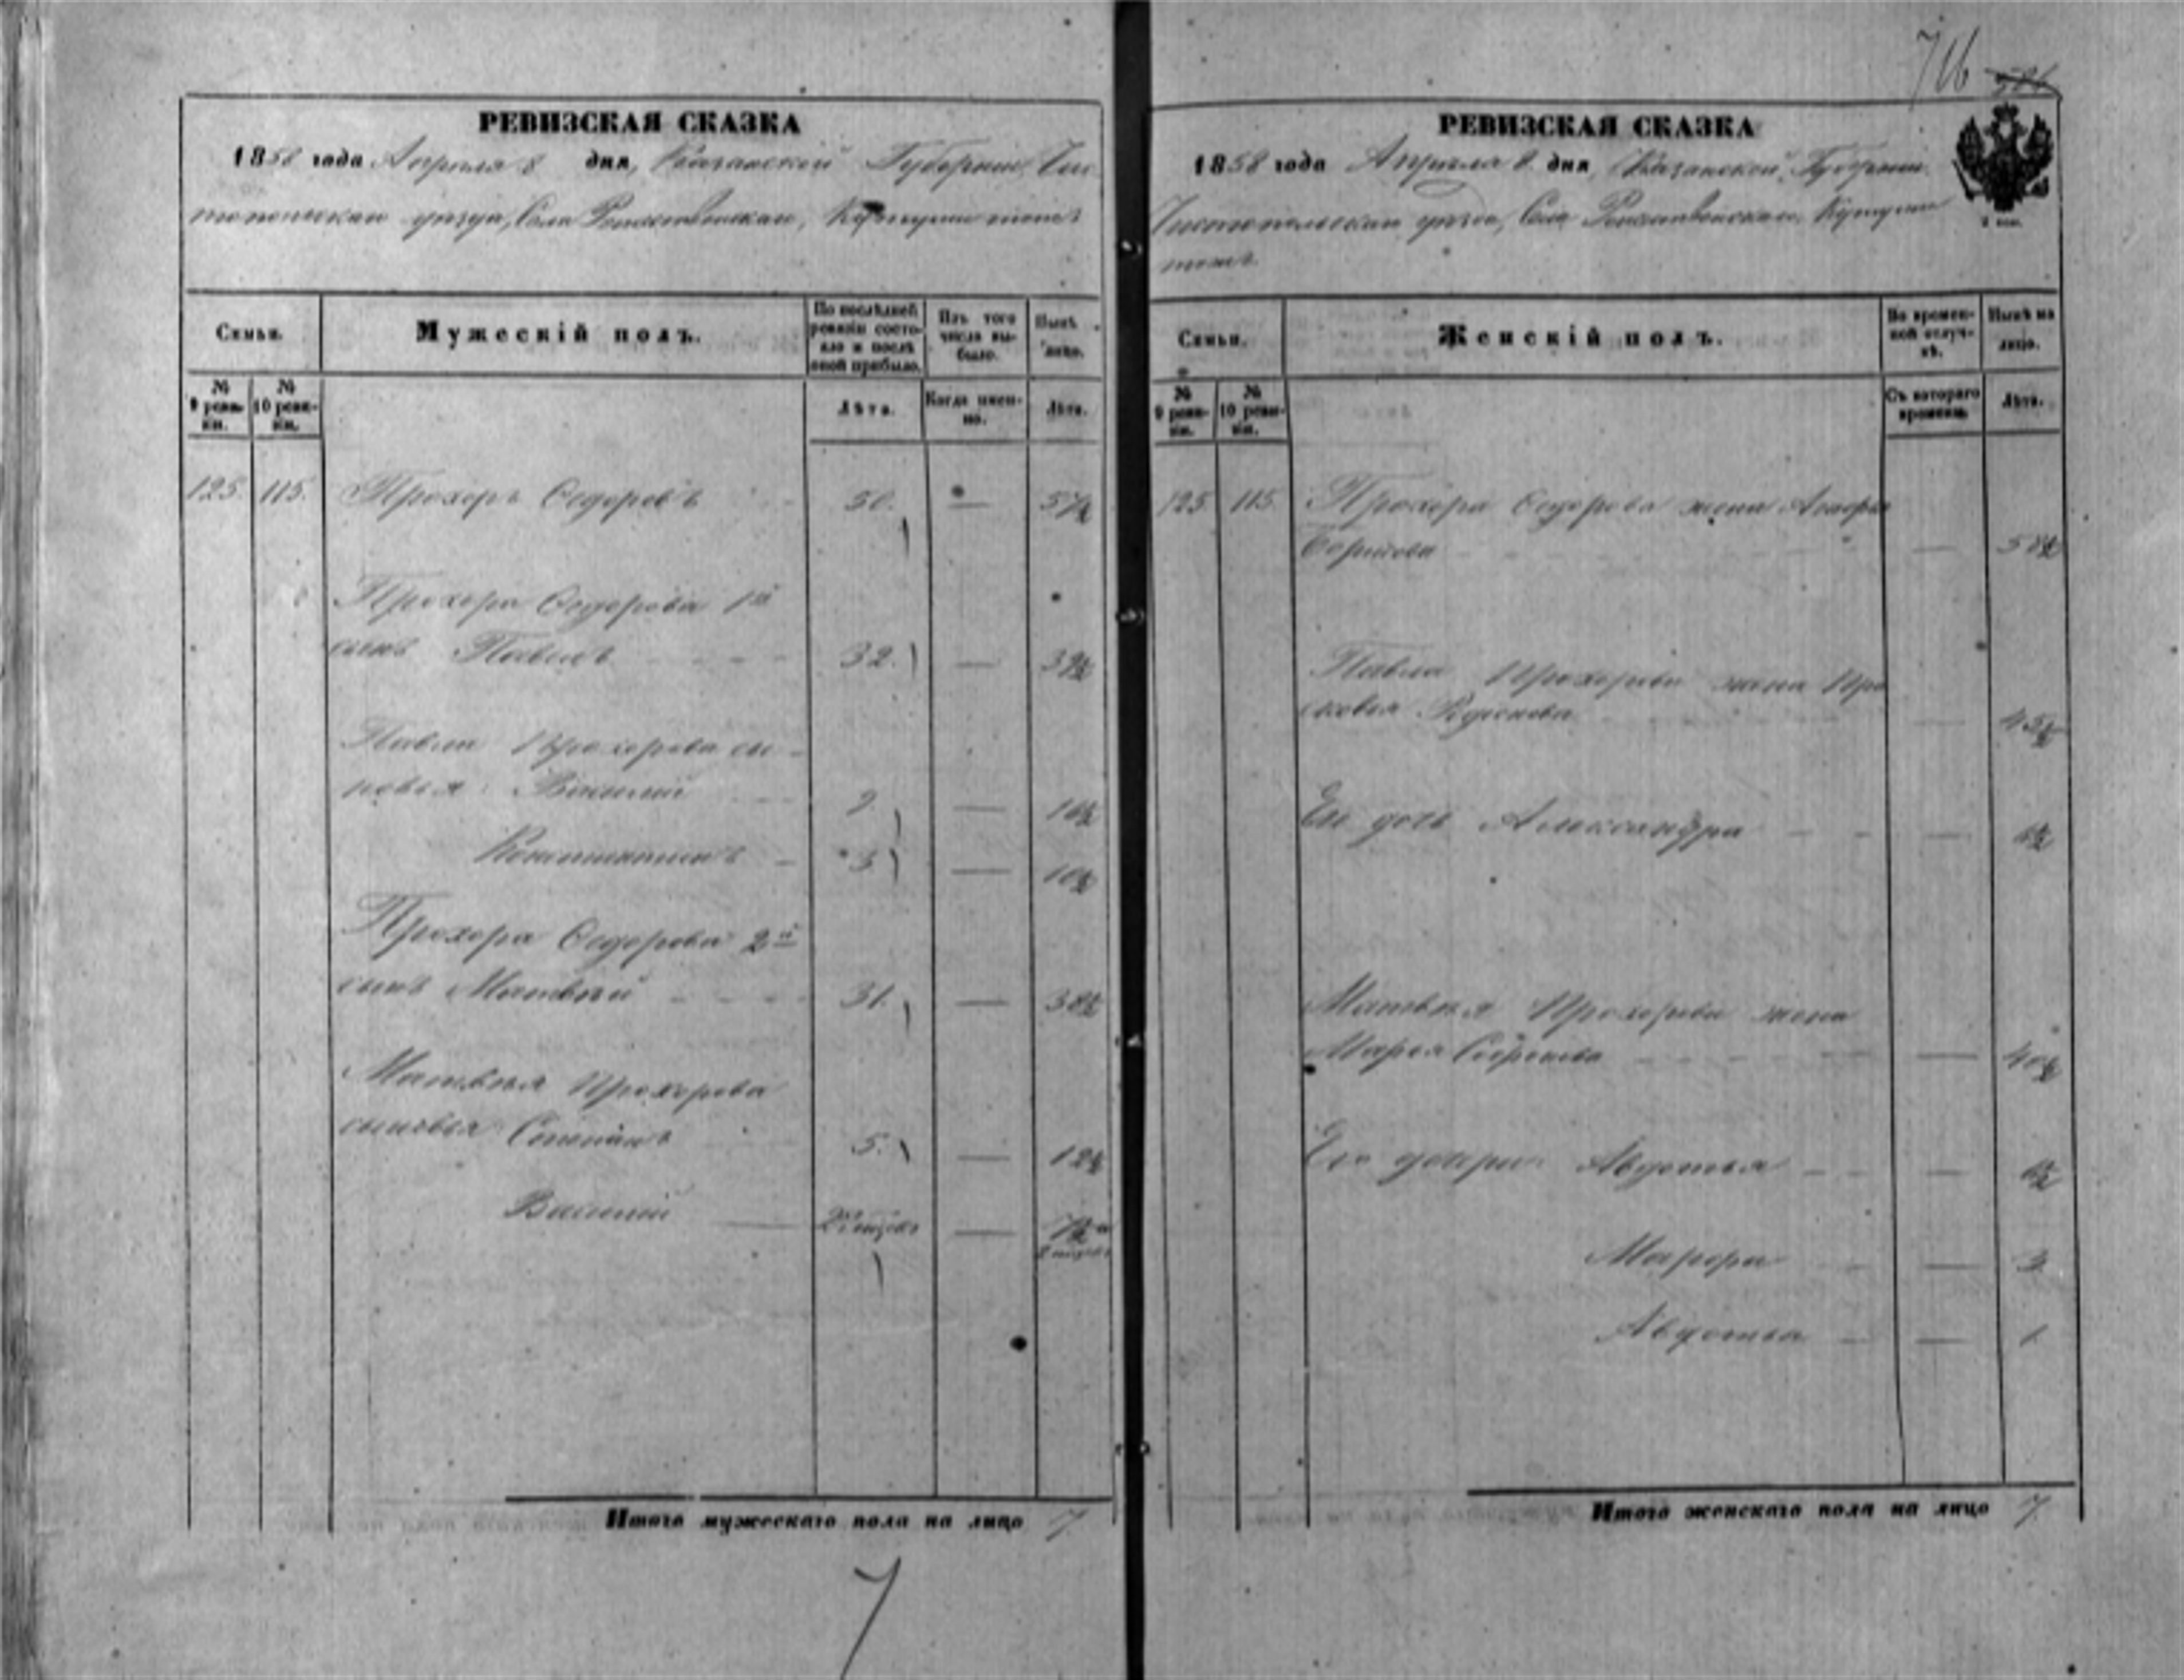 716
РЕВИЗСКАЯ СКАЗКА
1858 года Апреля 8 дня, Казанской Губернии, Чис
топольскаго уѣзда, Села Рождественскаго, Кутушъ тожъ
Семьи.
Мужескій полъ.
По послѣдней ревизіи состояло и послѣ оной прибыло.
Изъ того числа выбыло.
Нынѣ на лицо.
№ 9 ревизіи.
№ 10 ревизіи.
Лѣта.
Когда именно.
Лѣта.
125. 115. Прохоръ Ѳедоровъ 50. — 57½
Прохора Ѳедорова 1й
сынъ Павелъ 32. — 39½
Павла Прохорова сы-
новья: Василий 9. — 16½
Константинъ — 3 — 10½
Прохора Ѳедорова 2й
сынъ Матвѣй 31. — 38½
Матвѣя Прохорова
сыновья Степанъ 5. — 12½
Василий —
Итого мужескаго пола на лицо 7.
7
РЕВИЗСКАЯ СКАЗКА
1858 года Апреля 8. дня, Казанской Губернии
Чистопольскаго уѣзда, Села Рождественскаго, Кутушъ
тожъ.
Семьи.
Женскій полъ.
Во временной отлучкѣ.
Нынѣ на лицо.
№ 9 ревизіи.
№ 10 ревизіи.
Съ котораго времени.
Лѣта.
125 115. Прохора Ѳедорова жена
Борисова — 58½
Павла Прохорова жена Пра
сковья — 45½
Ея дочь Александра — 6½
Матвѣя Прохорова жена
Марья — 40½
Его дочери: Авдотья — 6½
Марѳа — 3
Авдотья — 1.
Итого женскаго пола на лицо 7.